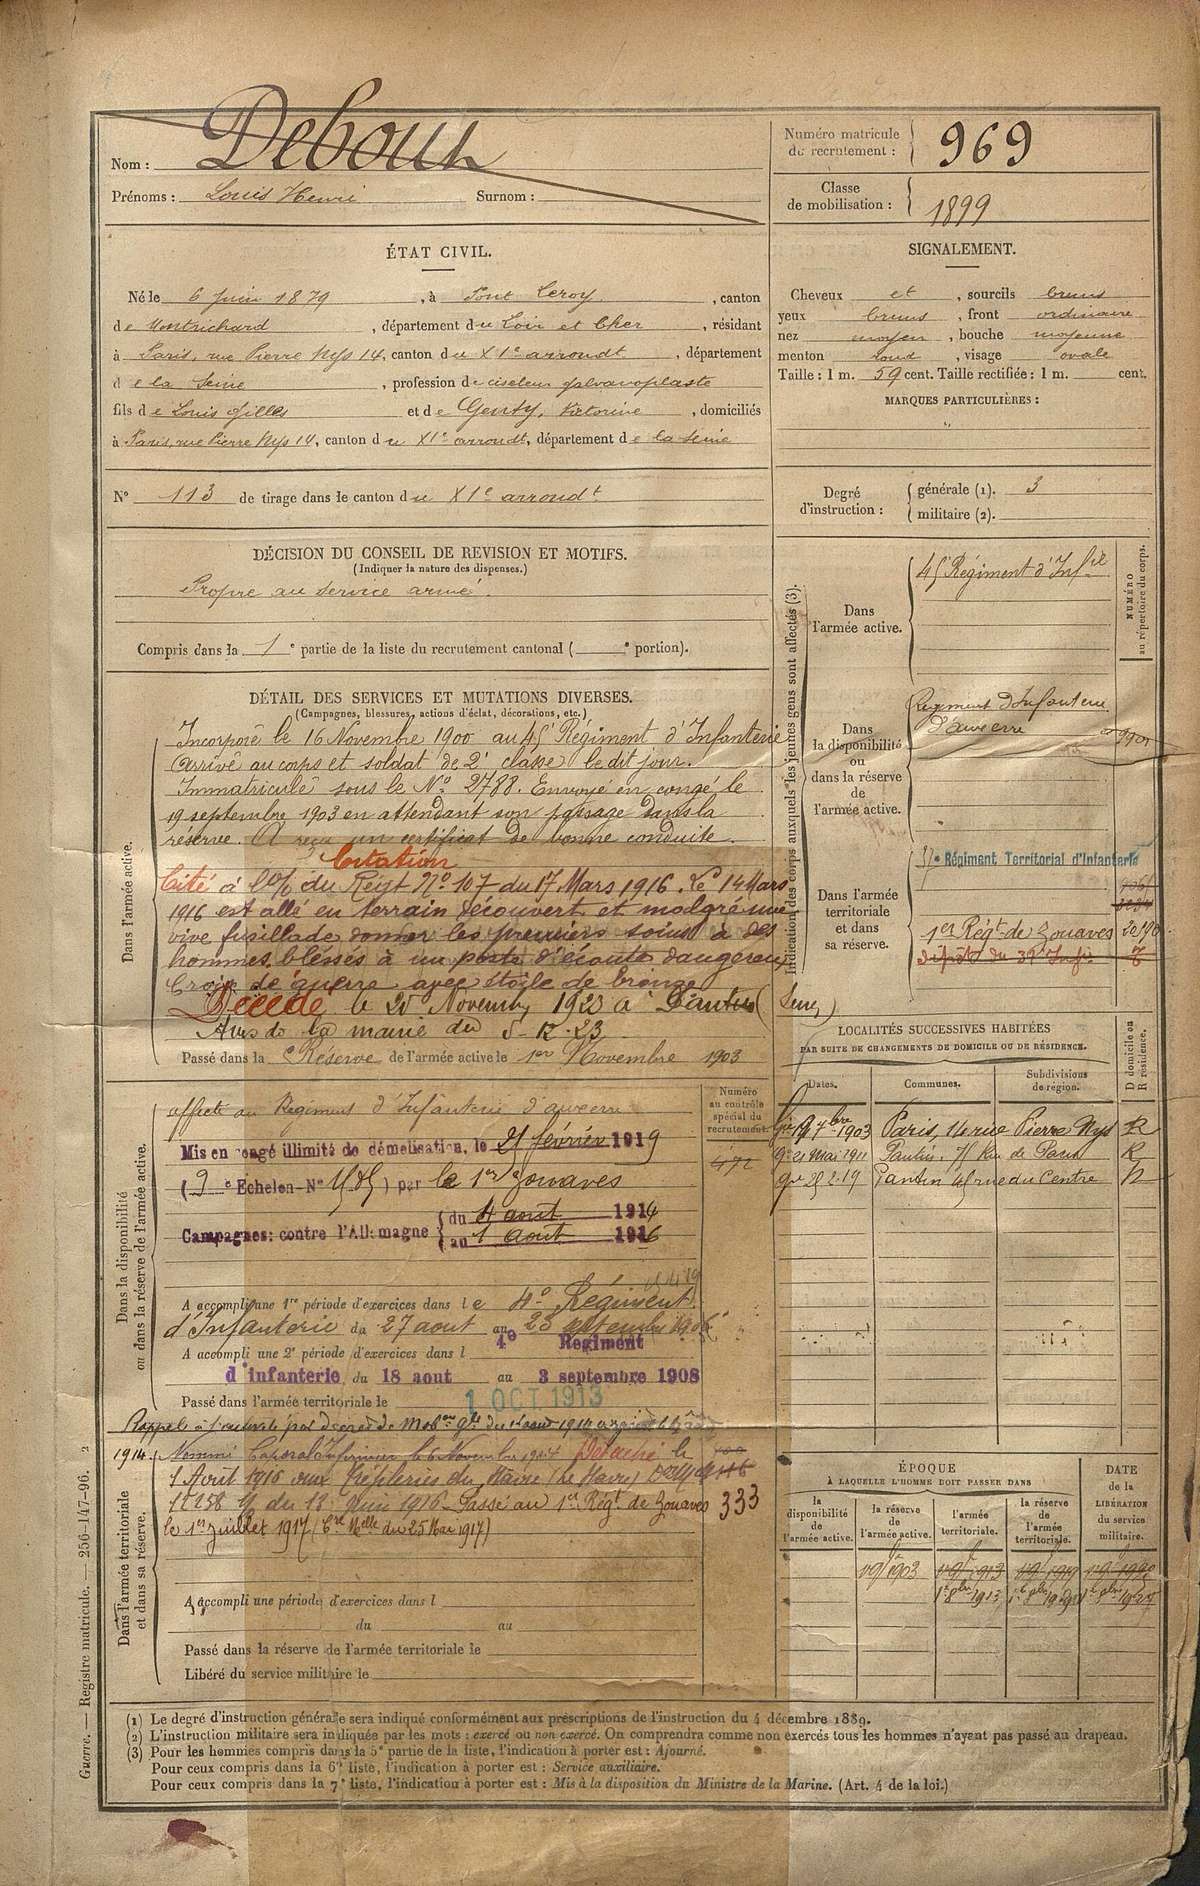 Nom : Debour
Prénoms : Louis Henri Surnom :
Numéro matricule de recrutement : 969
Classe de mobilisation : 1899
ÉTAT CIVIL.
Né le 6 juin 1879, à Pont Leroy, canton
de Montrichard, département du Loir et Cher, résidant
à Paris, rue Pierre Nys 14, canton du XIe arroudt, département
de la Seine, profession de ciseleur galvanoplaste
fils de Louis Gilles et de Genty, Victorine, domiciliés
à Paris, rue Pierre Nys 14, canton du XIe arroudt, département de la Seine
SIGNALEMENT.
Cheveux et, sourcils bruns
yeux bruns, front ordinaire
nez moyen, bouche moyenne
menton rond, visage ovale
Taille : 1 m. 59 cent. Taille rectifiée : 1 m. cent.
MARQUES PARTICULIÈRES :
N° 113 de tirage dans le canton du XIe arroudt
Degré d'instruction : générale (1). 3
militaire (2).
DÉCISION DU CONSEIL DE REVISION ET MOTIFS.
(Indiquer la nature des dispenses.)
Propre au service armé.
Compris dans la 1e partie de la liste du recrutement cantonal ( e portion).
DÉTAIL DES SERVICES ET MUTATIONS DIVERSES.
(Campagnes, blessures, actions d'éclat, décorations, etc.)
Dans l'armée active.
Incorporé le 16 Novembre 1900 au 45e Régiment d'Infanterie
Arrivé au corps et soldat de 2e classe le dit jour.
Immatriculé sous le No 2788. Envoyé en congé le
19 septembre 1903 en attendant son passage dans la
réserve. A reçu un certificat de bonne conduite.
Citation
Cité à l'o/ du Régt No 107 du 17 Mars 1916. Le 14 Mars
1916 est allé en terrain découvert et malgré une
vive fusillade donner les premiers soins à des
hommes blessés à un poste d'écoute dangereux
Croix de guerre avec étoile de bronze
Décédé le 25 Novemb 1923 à Pantin (Seine)
Avis de la mairie du 5-12-23
Passé dans la Réserve de l'armée active le 1er Novembre 1903
Indication des corps auxquels les jeunes gens sont affectés (3).
NUMÉRO au répertoire du corps.
Dans l'armée active.
45e Régiment d'Infie
Dans la disponibilité ou dans la réserve de l'armée active.
Régiment d'Infanterie
d'auxerre
Dans l'armée territoriale et dans sa réserve.
37e Régiment Territorial d'Infanterie
1er Régt de Zouaves
dépôt du 39e Infie
LOCALITÉS SUCCESSIVES HABITÉES
PAR SUITE DE CHANGEMENTS DE DOMICILE OU DE RÉSIDENCE.
Dates. Communes. Subdivisions de région. D domicile ou R résidence.
19 7bre 1903 Paris, 14 rue Pierre Nys R
21 Mai 1911 Pantin, Rue de Paris R
25.2.19 Pantin 45 rue du Centre
Dans la disponibilité ou dans la réserve de l'armée active.
Numéro au contrôle spécial du recrutement.
affecté au Régiment d'Infanterie d'auxerre
472
Mis en congé illimité de démobilisation, le 21 février 1919
(9e Echelon - No ) par le 1er Zouaves
Campagnes : contre l'Allemagne du 4 aout 1914
au 1 aout 1916
A accompli une 1re période d'exercices dans le 4e Régiment
d'Infanterie du 27 aout au 23 septembre 1906
A accompli une 2e période d'exercices dans l 4e Regiment
d'infanterie du 18 aout au 3 septembre 1908
Passé dans l'armée territoriale le 1 OCT 1913
Dans l'armée territoriale et dans sa réserve.
Rappelé à l'activité par décret de Mobon gle du 1er aout 1914
1914. Nommé Caporal Infirmier le 6 Novembre 1914 Détaché le
1 Avril 1916 aux Tréfileries du Havre (Le Havre)
du 13 Juin 1916. Passé au 1er Régt de Zouaves 333
le 1er Juillet 1917 (Cre Melle du 25 Mai 1917)
A accompli une période d'exercices dans l
du au
Passé dans la réserve de l'armée territoriale le
Libéré du service militaire le
ÉPOQUE
À LAQUELLE L'HOMME DOIT PASSER DANS
la disponibilité de l'armée active. la réserve de l'armée active. l'armée territoriale. la réserve de l'armée territoriale.
DATE de la LIBÉRATION du service militaire.
1903 1913
(1) Le degré d'instruction générale sera indiqué conformément aux prescriptions de l'instruction du 4 décembre 1889.
(2) L'instruction militaire sera indiquée par les mots : exercé ou non exercé. On comprendra comme non exercés tous les hommes n'ayant pas passé au drapeau.
(3) Pour les hommes compris dans la 5e partie de la liste, l'indication à porter est : Ajourné.
Pour ceux compris dans la 6e liste, l'indication à porter est : Service auxiliaire.
Pour ceux compris dans la 7e liste, l'indication à porter est : Mis à la disposition du Ministre de la Marine. (Art. 4 de la loi.)
Guerre. — Registre matricule. — 256-147-96. 2